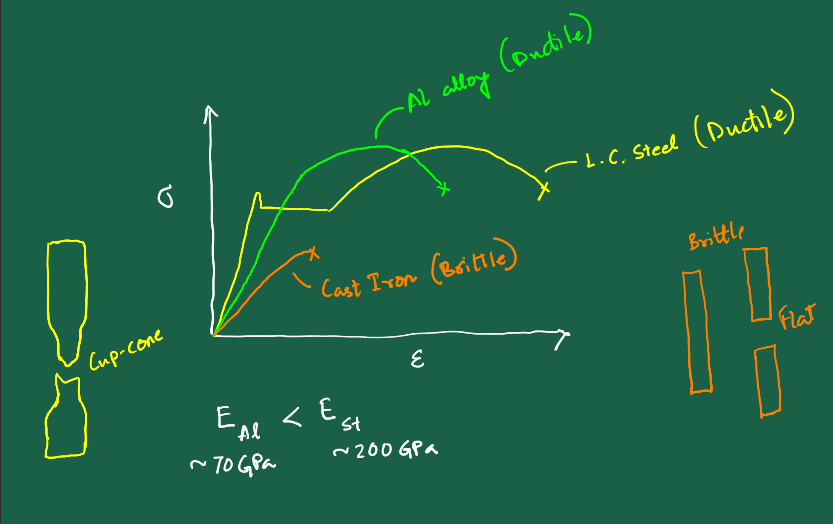 Al alloy (Ductile)
L.C. Steel (Ductile)
σ
Cast Iron (Brittle)
ε
Cup-cone
Brittle
Flat
E_Al < E_st
~70GPa ~200 GPa